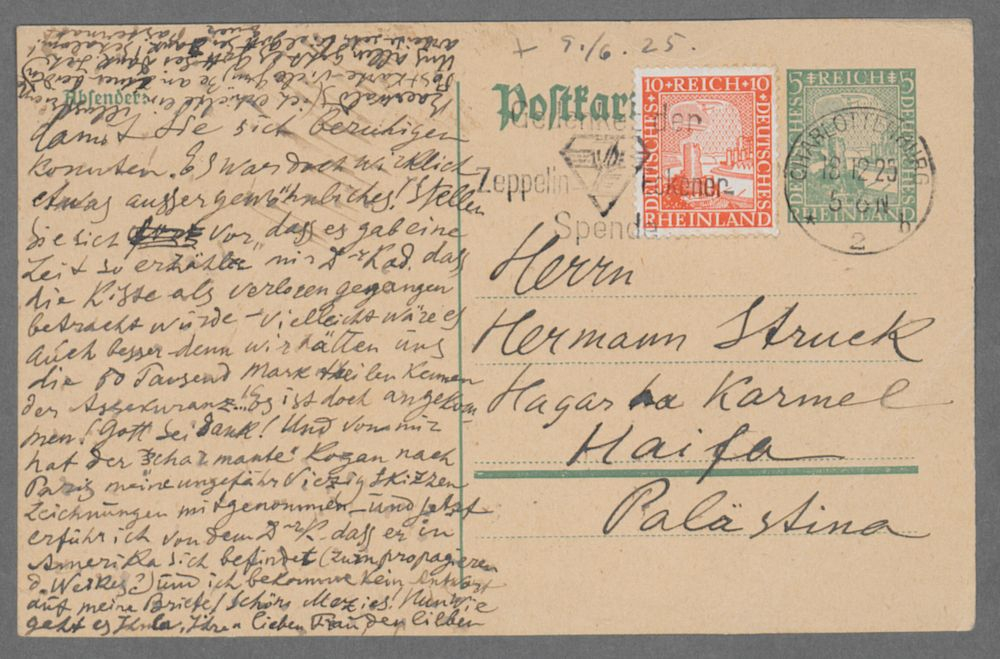 + 9./6. 25.
Absender:
Postkar
10 REICH 10
DEUTSCHES
DEUTSCHES
RHEINLAND
5 REICH 5
DEUTSCHES
RHEINLAND
CHARLOTTENBURG
18.12.25
5-6 N
* 2 b
Gedenket der
Zeppelin Eckener-
Spende
damit Sie sich beruhigen
konnten. Es war doch wirklich
etwas aussergewöhnliches! Stellen
Sie sich vor, dass es gab eine
Zeit so erzählte mir Dr Rad. dass
die Kiste als verloren gegangen
betracht wurde – vielleicht wäre es
auch besser denn wir hätten uns
die 60 Tausend Mark theilen können
der Assekuranz. Es ist doch angekom-
men! Gott sei Dank! Und von mir
hat der "scharmante" Kogan nach
Paris meine ungefähr Vierzig Skizzen
Zeichnungen mitgenommen – und jetzt
erfuhr ich von dem Dr dass er in
Amerika sich befindet (zum propagieren
d. Werkes?) und ich bekomme kein Antwort
auf meine Briefe! Schöne Mezies! Nun wie
geht es Ihnen, Ihren lieben Frau, den lieben
Herrn
Hermann Struck
Hagar ha Karmel
Haifa
Palästina